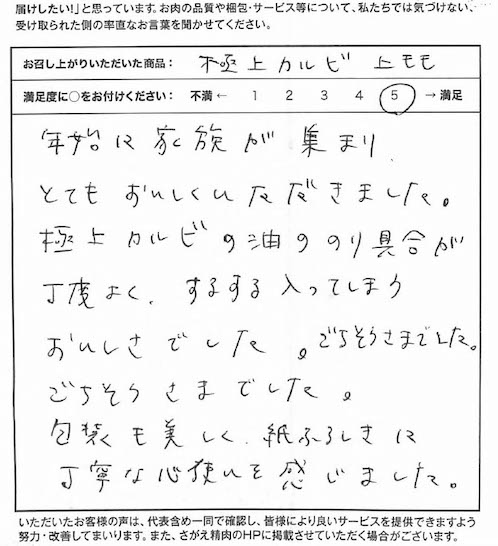 届けしたい!」と思っています。お肉の品質や梱包・サービス等について、私たちでは気づけない、
受け取られた側の率直なお言葉を聞かせてください。
お召し上がりいただいた商品: 極上カルビ 上モモ
満足度に○をお付けください: 不満 ← 1 2 3 4 5 → 満足
年始に家族が集まり、
とてもおいしくいただきました。
極上カルビの油ののり具合が
丁度よく、するする入ってしまう
おいしさでした。ごちそうさまでした。
ごちそうさまでした。
包装も美しく、紙ふろしきに
丁寧な心使いを感じました。
いただいたお客様の声は、代表含め一同で確認し、皆様により良いサービスを提供できますよう
努力・改善してまいります。また、さがえ精肉のHPに掲載させていただく場合がございます。